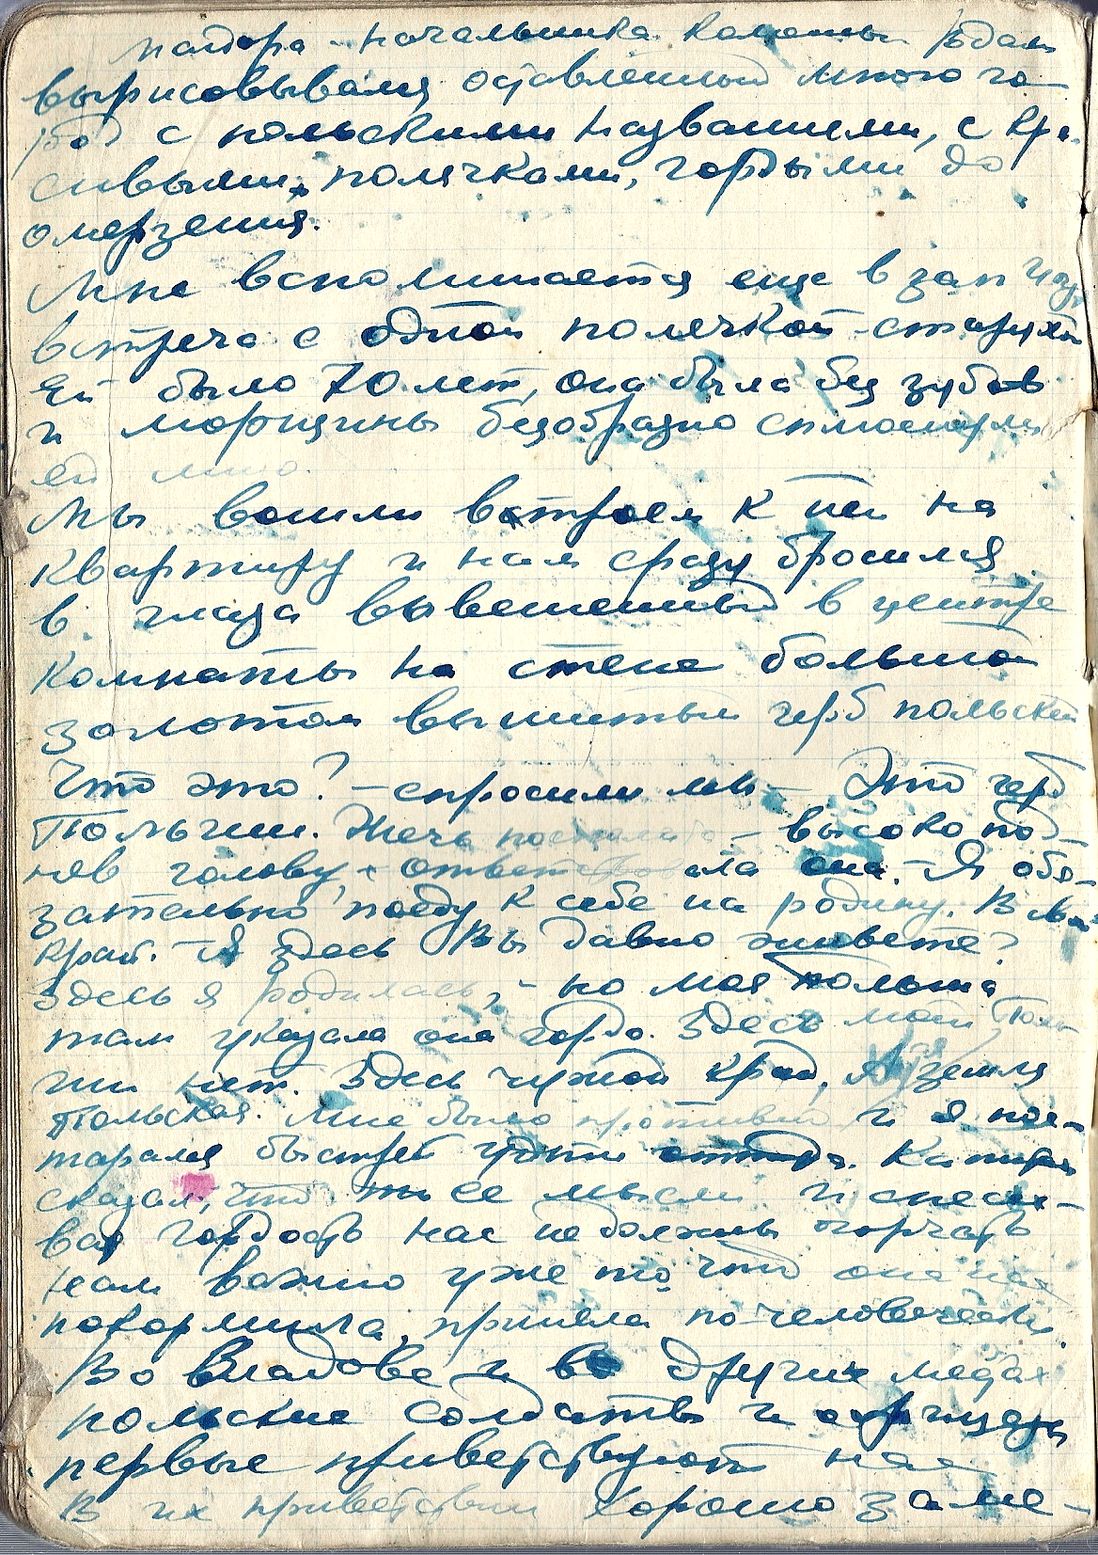 майора - начальника колонны. Вдали
вырисовывался оставленный много го-
род с польскими названиями, с кра-
сивыми полячками, гордыми до
омерзения.
Мне вспоминается еще в зап
встреча с одной полячкой-старухой
Ей было 70 лет, она была без зубов
и морщины безобразно
ей лицо.
Мы вошли втроем к ней на
квартиру и нам сразу бросился
в глаза вывешенный в центре
комнаты на стене большой
золотом вышитый герб польский
Что это? - спросили мы - Это герб
Польши. - высоко под-
няв голову ответствовала она. - Я обя-
зательно поеду к себе на родину. В мой
край. - А здесь Вы давно живете?
Здесь я родилась, - но моя Польша
там указала она гордо. Здесь моей Поль-
ши нет. Здесь чужой край, А там земля
Польская. Мне было противно и я пос-
тарался быстрей уйти оттуда. Капитан
сказал, что ее мысли и спеси-
вая гордость нас не должны огорчать
нам важно уже то что она нас
покормила, приняла по-человечески.
Во Владове и в других местах
польские солдаты и офицеры
первые приветствуют нас
В их приветствии хорошо заме-